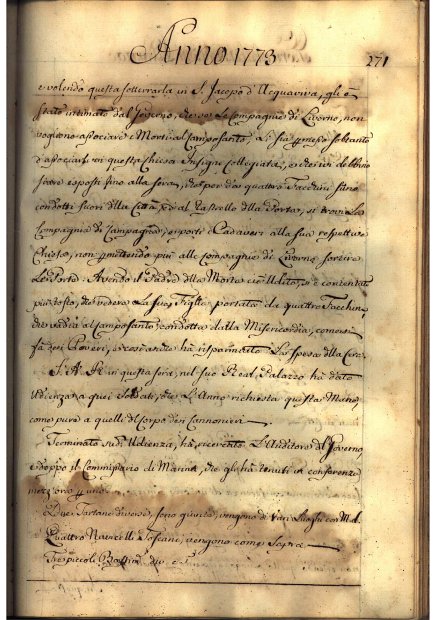 Anno 1773
271
e volendo questa sotterrarla in S. Jacopo d'Acquaviva, gli è
stato intimato dal Governo, che se le Compagnie di Livorno, non
vogliono associare i Morti al Camposanto, Li sia permesso soltanto
d'associarsi in questa Chiesa Insigne Collegiata, e che ivi debbino
stare esposti fino alla sera, che poi da quattro Facchini siino
condotti fuori della Città, ed al Rastrello della Porta, si trovi la
Compagnia di Campagna, e porti i Cadaveri alla sua respettiva
Chiesa, non permettendo più alle Compagnie di Livorno sortire
Le Porte. Avendo il Padre della Morta ciò Udito, si è contentato
più tosto, che vedere la sua Figlia portata da quattro Facchini,
che vadia al Camposanto, condotta dalla Misericordia, come si
fa dei Poveri, e così anche ha risparmiato La spesa della Cera.
S. A. R. in questa sera, nel suo Real Palazzo ha dato
Udienza a quei Soldati, che L'Anno richiesta questa Mane,
come pure a quelli del Corpo dei Cannonieri.
Terminata sud.a Udienza, ha ricevuto L'Auditore del Governo,
e doppo il Commissario di Marina, che gl'ha tenuti in conferenza
mezz'ora p. uno.
Due Tartane diverse, sono giunte, vengono di Vari Luoghi con
Quattro Navicelli Toscani, vengono come Sopra
Tre piccoli